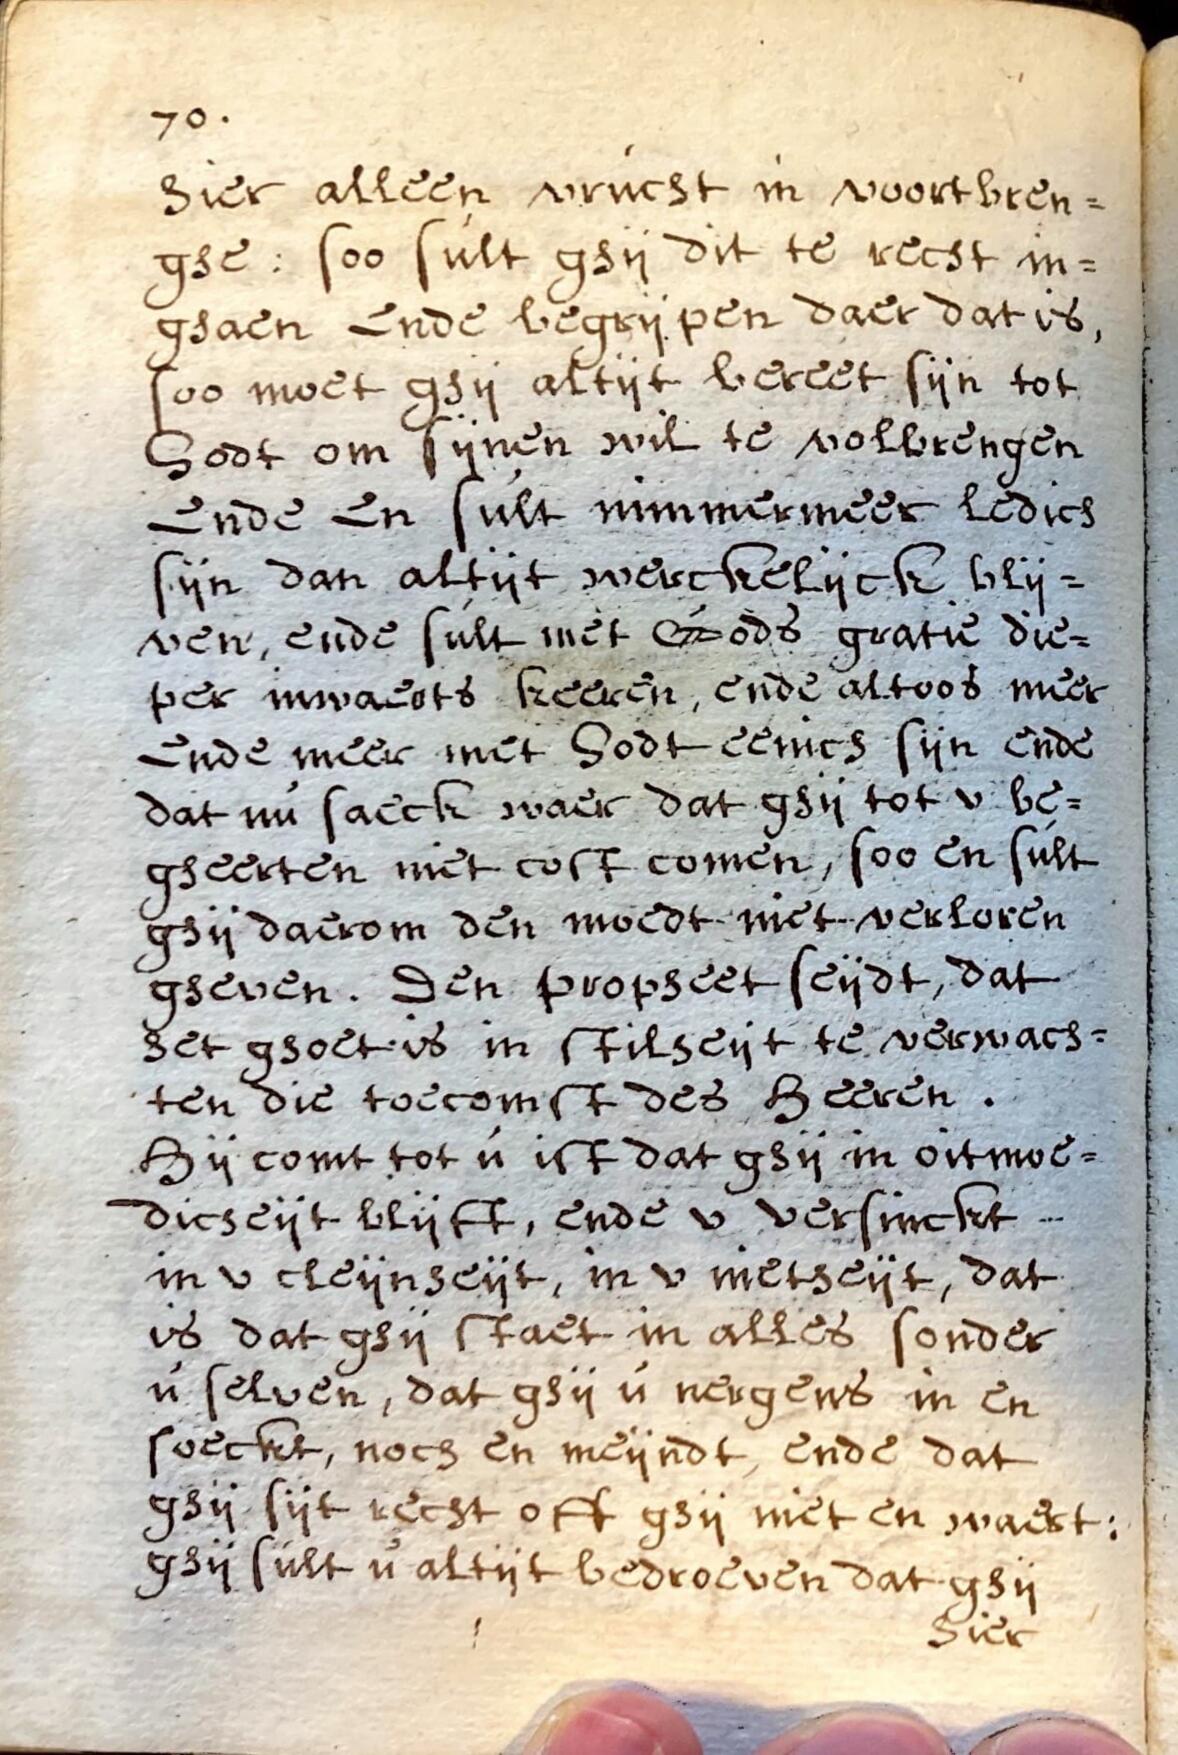 70.
hier alleen vrucht in voortbren=
ghe: soo sult ghij dit te recht in=
ghaen Ende begrijpen daer dat is,
soo moet ghij altijt bereet sijn tot
Godt om sijnen wil te volbrengen
Ende En sult nimmermeer ledich
sijn dan altijt werckelijck blij=
ven, ende sult met Gods gratie die=
per inwaerts keeren, ende altoos meer
Ende meer met Godt eenich sijn ende
dat nu saeck waer dat ghij tot v be=
gheerten niet cost comen, soo en sult
ghij daerom den moedt niet verloren
gheven. Den propheet seijdt, dat
het ghoet is in stilheijt te verwach=
ten die toecomst des Heeren.
Hij comt tot u ist dat ghij in oitmoe=
dicheijt blijft, ende v versinckt
in v cleijnheijt, in v nietheijt, dat
is dat ghij staet in alles sonder
u selven, dat ghij u nergens in en
soeckt, noch en meijndt, ende dat
ghij sijt recht off ghij niet en waert:
ghij sult u altijt bedroeven dat ghij
hier